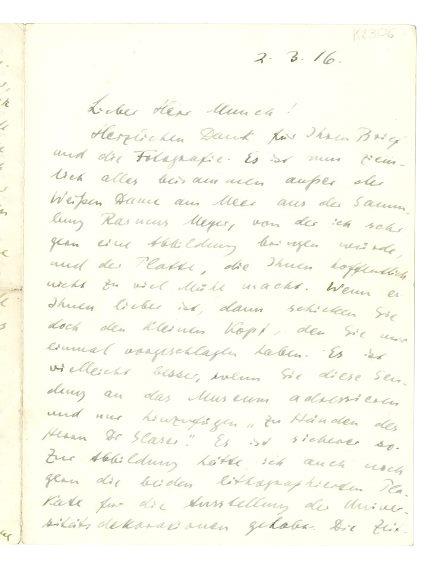 K2306
2. 3. 16.
Lieber Herr Munch!
Herzlichen Dank für Ihren Brief
und die Fotografie. Es ist nun ziem-
lich alles beisammen außer der
Weißen Dame am Meer aus der Samm-
lung Rasmus Meyer, von der ich sehr
gern eine Abbildung bringen würde,
und der Platte, die Ihnen hoffentlich
nicht zu viel Mühe macht. Wenn es
Ihnen lieber ist, dann schicken Sie
doch den kleinen Kopf, den Sie mir
einmal vorgeschlagen haben. Es ist
vielleicht besser, wenn Sie diese Sen-
dung an das Museum adressieren
und nur hinzufügen „zu Händen des
Herrn Dr Glaser." Es ist sicherer so.
Zur Abbildung hätte ich auch noch
gern die beiden lithographierten Pla-
kate für die Ausstellung der Univer-
sitätsdekorationen gehabt. Die Zeit-